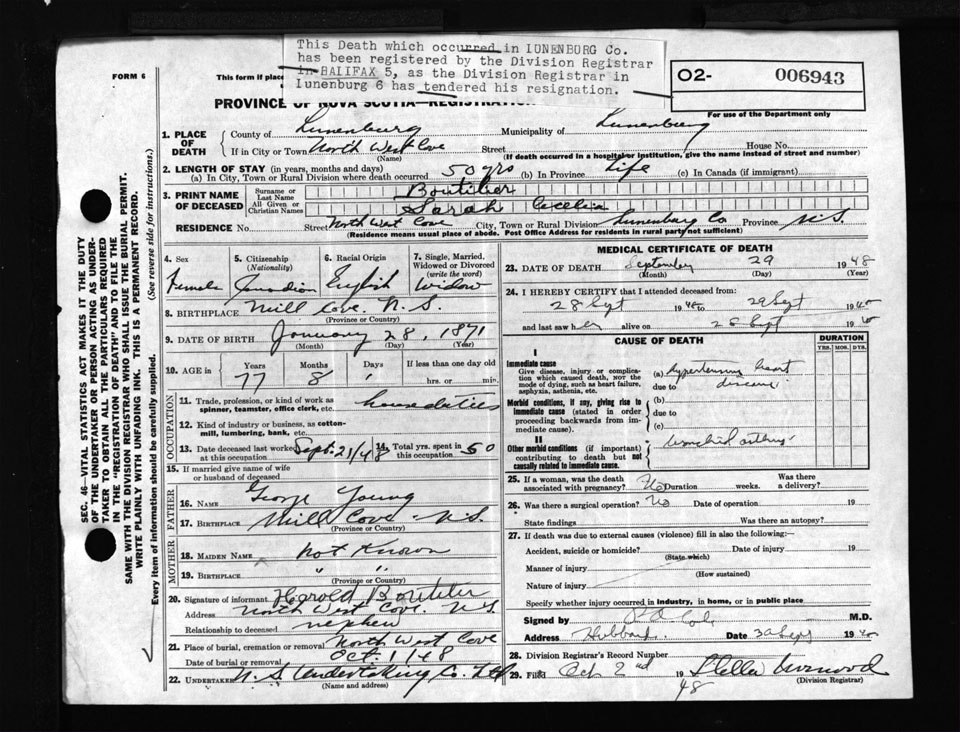 This Death which occurred in IUNENBURG Co.
has been registered by the Division Registrar
in HALIFAX 5, as the Division Registrar in
Iunenburg 6 has tendered his resignation.
O2- 006943
FORM 6
This form if place
For use of the Department only
PROVINCE OF NOVA SCOTIA—REGISTRATION OF DEATH
1. PLACE OF DEATH
County of Lunenburg Municipality of Lunenburg
If in City or Town North West Cove Street House No.
(Name) (If death occurred in a hospital or institution, give the name instead of street and number)
2. LENGTH OF STAY (in years, months and days)
(a) In City, Town or Rural Division where death occurred 50 yrs (b) In Province Life (c) In Canada (if immigrant)
3. PRINT NAME OF DECEASED
Surname or Last Name Boutilier
All Given or Christian Names Sarah Cecelia
RESIDENCE No. Street North West Cove City, Town or Rural Division Lunenburg Co Province N.S.
(Residence means usual place of abode. Post Office Address for residents in rural party not sufficient)
4. Sex Female
5. Citizenship (Nationality) Canadian
6. Racial Origin English
7. Single, Married, Widowed or Divorced (write the word) Widow
8. BIRTHPLACE Mill Cove. N.S.
(Province or Country)
9. DATE OF BIRTH January 28, 1871
(Month) (Day) (Year)
10. AGE in Years 77 Months 8 Days 1 If less than one day old
hrs. or min.
OCCUPATION
11. Trade, profession, or kind of work as spinner, teamster, office clerk, etc. house duties
12. Kind of industry or business, as cotton-mill, lumbering, bank, etc.
13. Date deceased last worked at this occupation Sept. 21/48
14. Total yrs. spent in this occupation 50
15. If married give name of wife or husband of deceased
FATHER
16. NAME George Young
17. BIRTHPLACE Mill Cove N.S.
(Province or Country)
MOTHER
18. MAIDEN NAME Not Known
19. BIRTHPLACE " "
(Province or Country)
20. Signature of informant Harold Boutilier
Address North West Cove. N.S.
Relationship to deceased nephew
21. Place of burial, cremation or removal North West Cove
Date of burial or removal Oct. 1/48
22. UNDERTAKER N.S. Undertaking Co. Ltd
(Name and address)
MEDICAL CERTIFICATE OF DEATH
23. DATE OF DEATH September 29 1948
(Month) (Day) (Year)
24. I HEREBY CERTIFY that I attended deceased from:
28 Sept 1948 to 29 Sept 1948
and last saw her alive on 28 Sept 1948
CAUSE OF DEATH
DURATION
YRS. MOS. DYS.
I
Immediate cause
Give disease, injury or complication which caused death, not the mode of dying, such as heart failure, asphyxia, asthenia, etc.
(a) hypertensive heart
due to disease
Morbid conditions, if any, giving rise to immediate cause (stated in order proceeding backwards from immediate cause).
(b)
due to
(c)
II
Other morbid conditions (if important) contributing to death but not causally related to immediate cause.
bronchial asthma
25. If a woman, was the death associated with pregnancy? No Duration weeks. Was there a delivery?
26. Was there a surgical operation? No Date of operation 19
State findings Was there an autopsy?
27. If death was due to external causes (violence) fill in also the following:—
Accident, suicide or homicide? Date of injury 19
(State which)
Manner of injury
(How sustained)
Nature of injury
Specify whether injury occurred in industry, in home, or in public place
Signed by Cole M.D.
Address Hubbards Date 30 Sept 1948
28. Division Registrar's Record Number
29. Filed Oct 2nd 1948 Stella
(Division Registrar)
SEC. 46—VITAL STATISTICS ACT MAKES IT THE DUTY
OF THE UNDERTAKER OR PERSON ACTING AS UNDER-
TAKER TO OBTAIN ALL THE PARTICULARS REQUIRED
IN THE "REGISTRATION OF DEATH" AND TO FILE THE
SAME WITH THE DIVISION REGISTRAR WHO SHALL ISSUE THE BURIAL PERMIT.
WRITE PLAINLY WITH UNFADING INK. THIS IS A PERMANENT RECORD.
Every item of information should be carefully supplied. (See reverse side for instructions.)